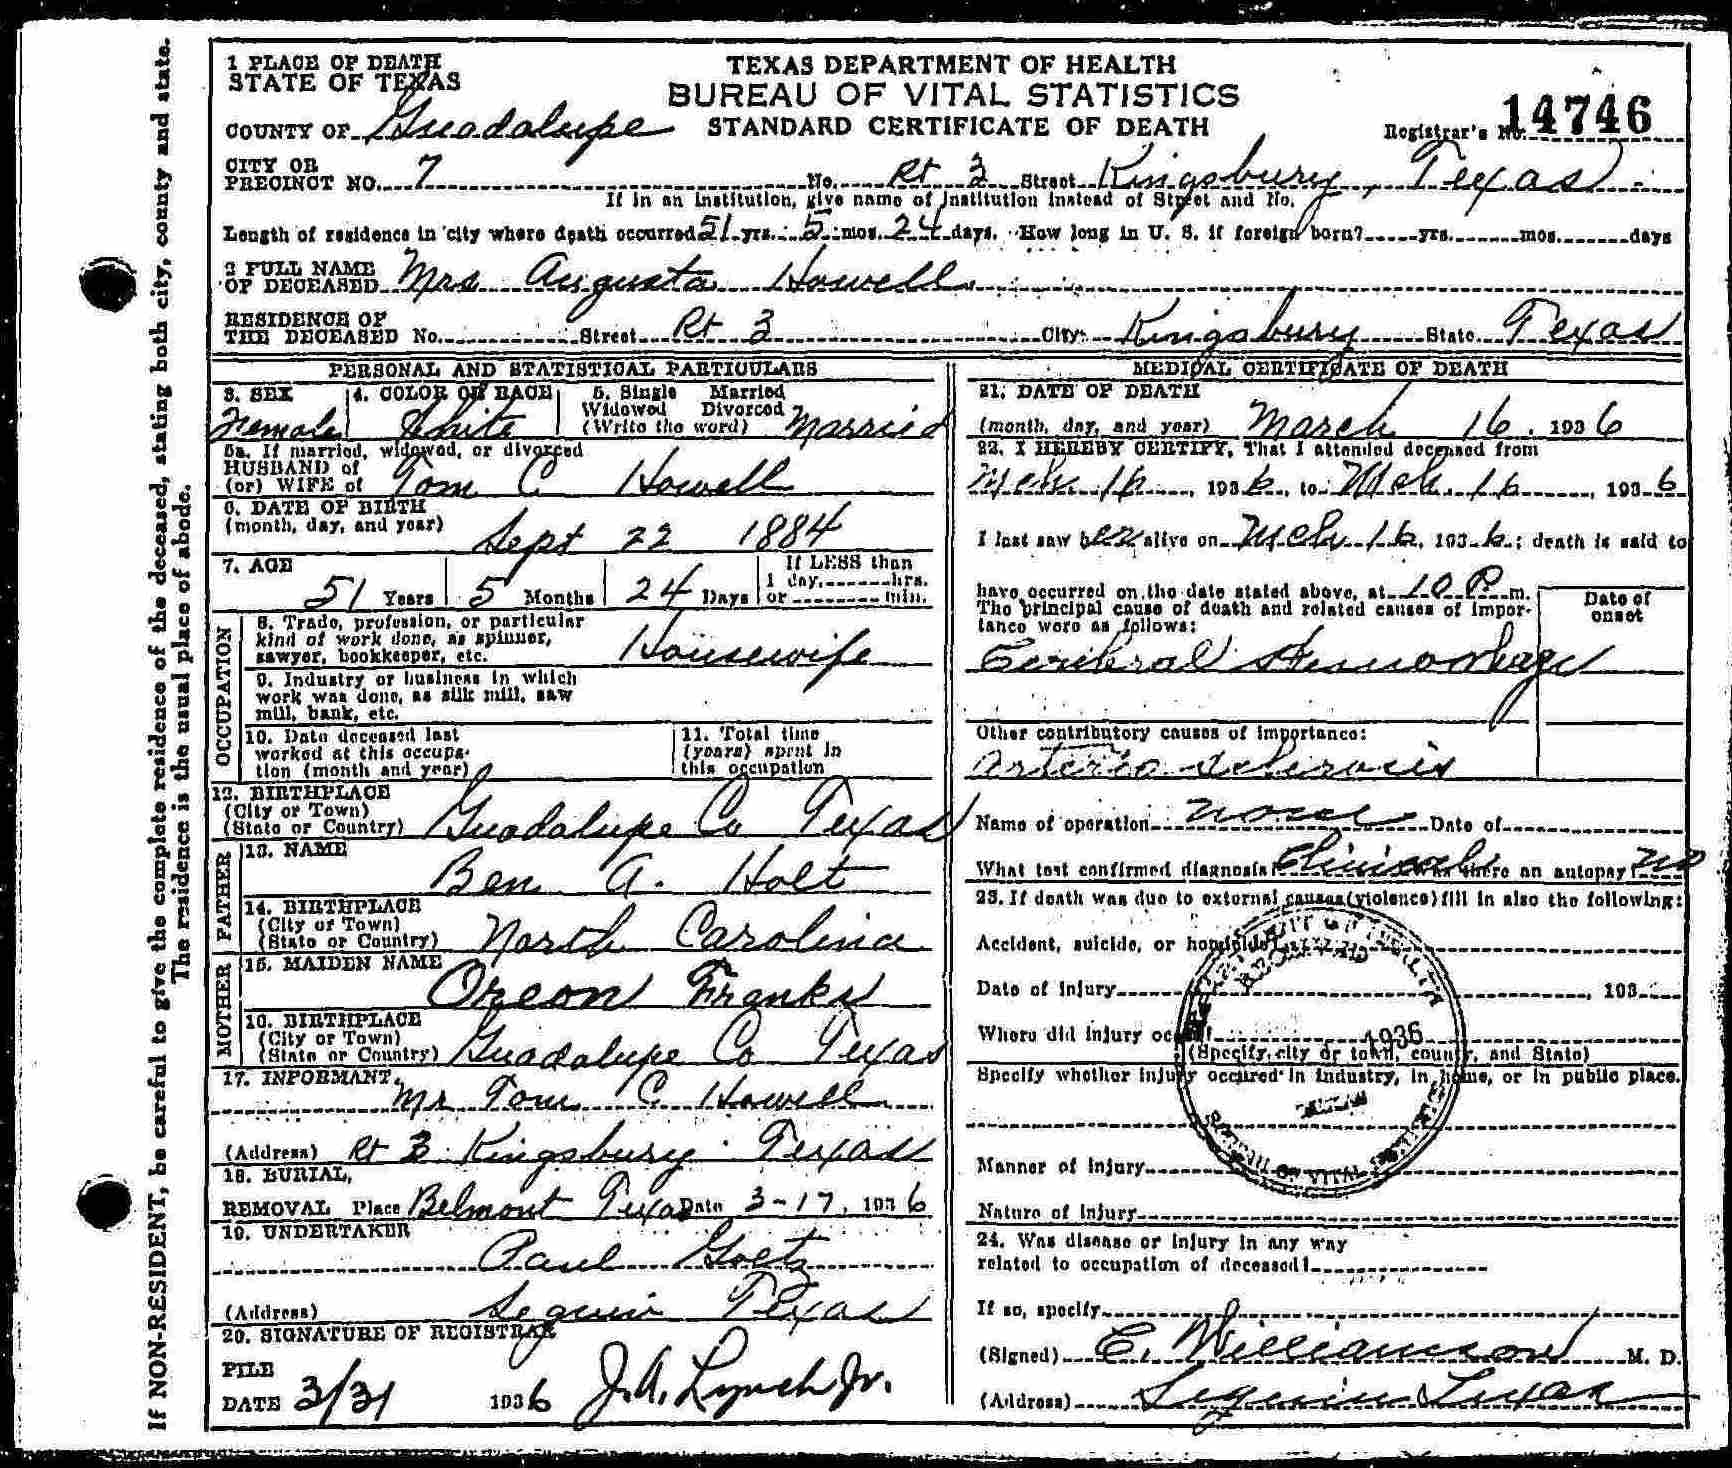 If NON-RESIDENT, be careful to give the complete residence of the deceased, stating both city, county and state.
The residence is the usual place of abode.
1 PLACE OF DEATH
STATE OF TEXAS
COUNTY OF Guadalupe
TEXAS DEPARTMENT OF HEALTH
BUREAU OF VITAL STATISTICS
STANDARD CERTIFICATE OF DEATH
Registrar's No. 14746
CITY OR
PRECINCT NO. 7 No. Rt 3 Street Kingsbury, Texas
If in an institution, give name of institution instead of Street and No.
Length of residence in city where death occurred 51 yrs. 5 mos. 24 days. How long in U. S. if foreign born? yrs. mos. days
2 FULL NAME
OF DECEASED Mrs Augusta Howell
RESIDENCE OF
THE DECEASED No. Street Rt 3 City Kingsbury State Texas
PERSONAL AND STATISTICAL PARTICULARS
3. SEX
Female
4. COLOR OR RACE
White
5. Single Married
Widowed Divorced
(Write the word) Married
5a. If married, widowed, or divorced
HUSBAND of
(or) WIFE of Tom C Howell
6. DATE OF BIRTH
(month, day, and year) Sept 22 1884
7. AGE
51 Years 5 Months 24 Days
If LESS than
1 day, hrs.
or min.
OCCUPATION
8. Trade, profession, or particular
kind of work done, as spinner,
sawyer, bookkeeper, etc. Housewife
9. Industry or business in which
work was done, as silk mill, saw
mill, bank, etc.
10. Date deceased last
worked at this occupa-
tion (month and year)
11. Total time
(years) spent in
this occupation
12. BIRTHPLACE
(City or Town)
(State or Country) Guadalupe Co Texas
FATHER
13. NAME
Ben A. Holt
14. BIRTHPLACE
(City or Town)
(State or Country) North Carolina
MOTHER
15. MAIDEN NAME
Oreon Franks
16. BIRTHPLACE
(City or Town)
(State or Country) Guadalupe Co Texas
17. INFORMANT
Mr Tom C Howell
(Address) Rt 3 Kingsbury Texas
18. BURIAL,
REMOVAL Place Belmont Texas Date 3-17, 1936
19. UNDERTAKER
Paul Goetz
(Address) Seguin Texas
20. SIGNATURE OF REGISTRAR
FILE
DATE 3/31 1936 J. A. Lynch Jr.
MEDICAL CERTIFICATE OF DEATH
21. DATE OF DEATH
(month, day, and year) March 16, 1936
22. I HEREBY CERTIFY, That I attended deceased from
Mch. 16, 1936, to Mch. 16, 1936
I last saw her alive on Mch 16, 1936; death is said to
have occurred on the date stated above, at 10 P. m.
The principal cause of death and related causes of impor-
tance were as follows:
Date of
onset
Cerebral Hemorrhage
Other contributory causes of importance:
Arterio Sclerosis
Name of operation none Date of
What test confirmed diagnosis? Clinical Was there an autopsy? no
23. If death was due to external causes (violence) fill in also the following:
Accident, suicide, or homicide?
Date of injury , 193
Where did injury occur?
(Specify city or town, county, and State)
Specify whether injury occured in industry, in home, or in public place.
Manner of injury
Nature of injury
RECEIVED
1936
BUREAU OF VITAL STATISTICS
24. Was disease or injury in any way
related to occupation of deceased?
If so, specify
(Signed) C. Williamson M. D.
(Address) Seguin Texas